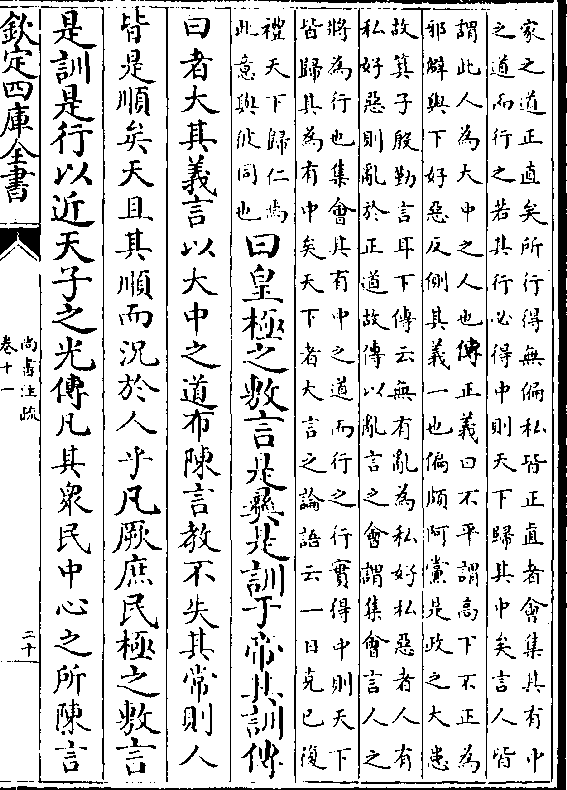 家之道正直矣所行得無偏私皆正直者會集其有中
之道而行之若其行必得中則天下歸其中矣言人皆
謂此人為大中之人也傳正義曰不平謂高下不正為
邪僻與下好惡反側其義一也偏頗阿黨是政之大患
故箕子殷勤言耳下傳云無有亂為私好私惡者人有
私好惡則亂於正道故傳以亂言之會謂集會言人之
將為行也集會其有中之道而行之行實得中則天下
皆歸其為有中矣天下者大言之論語云一日克已復
禮天下歸仁焉
此意與彼同也
曰皇極之敷言是彞是訓于帝其訓傳
曰者大其義言以大中之道布陳言教不失其常則人
皆是順矣天且其順而況於人乎凡厥庶民極之敷言
是訓是行以近天子之光傳凡其衆民中心之所陳言
欽定四庫全書
尚書注疏
卷十一
二十